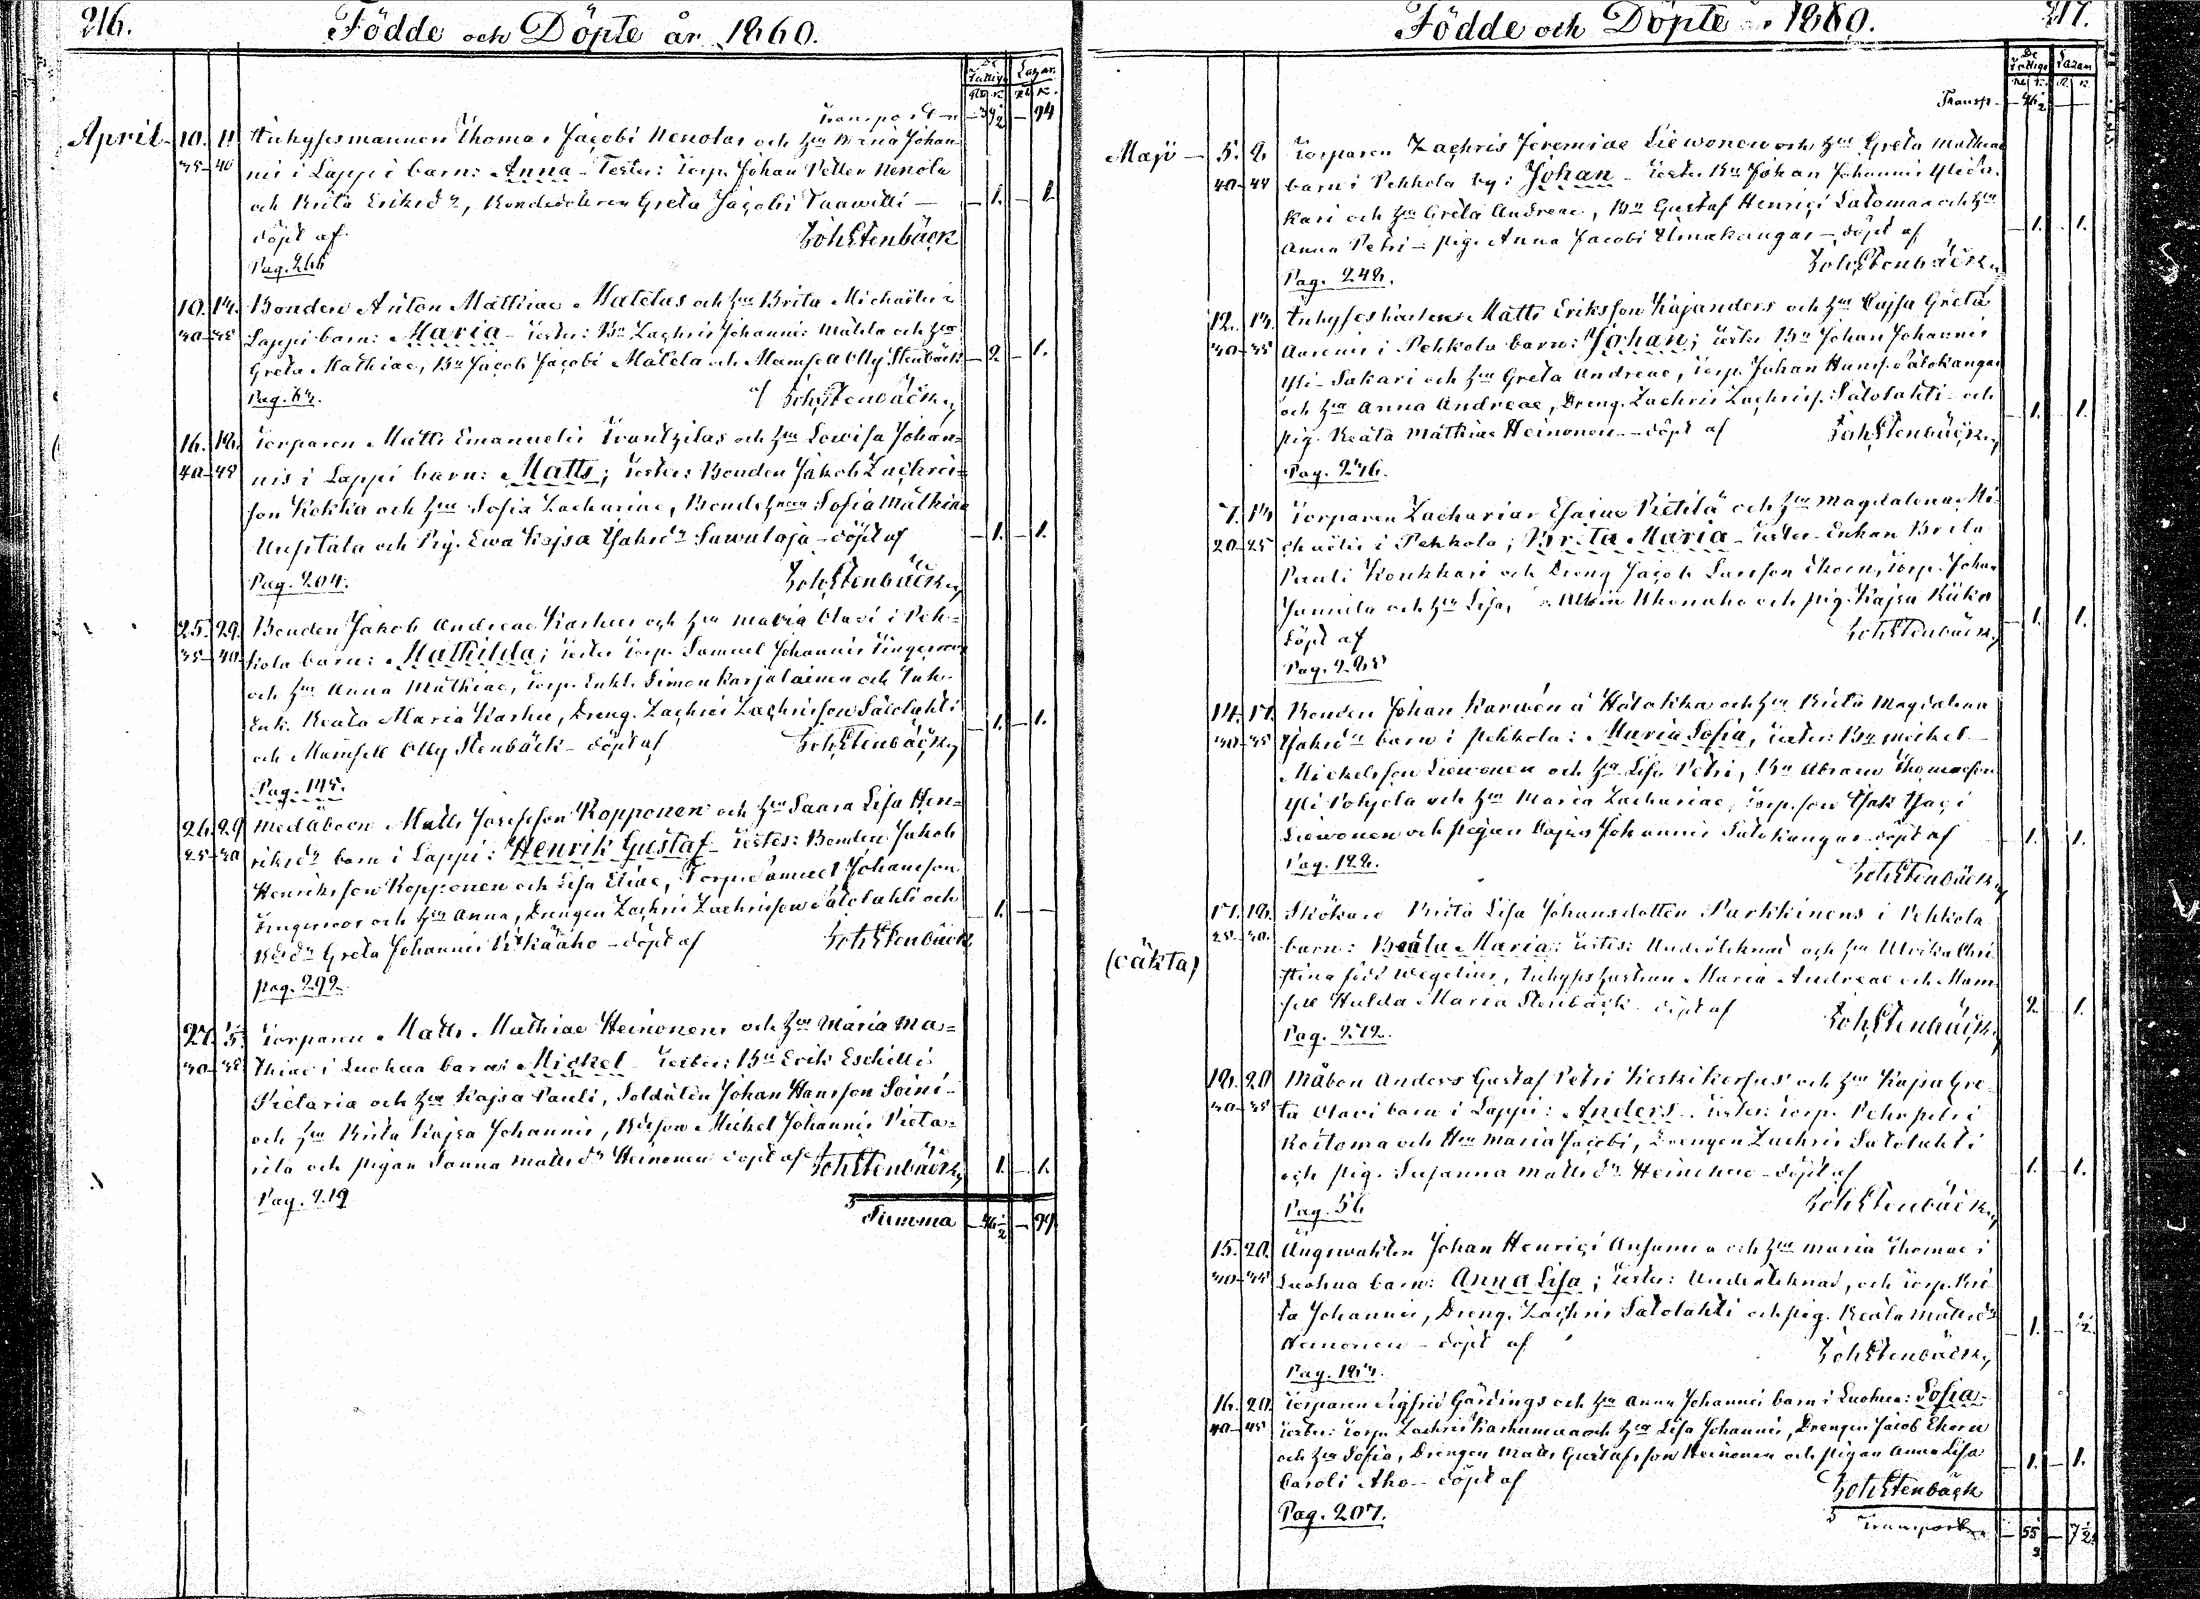 216.
Födde och Döpte år 1860.
De Fattiga
Lazar.
Transport — 39½ — 94
April 10. 11. Inhysesmannen Thomas Jacobi Nenolas och hu Maria Johan-
35-40 nis i Lappi barn: Anna - Testes: Torp. Johan Petter Nenola
och Brita Eriksdr, Bondedottren Greta Jacobi Taawitti — 1. — 1.
döpt af JohEStenbäck
Pag. 266
10. 14. Bonden Anton Mathiae Matelas och hu Brita Michaelis i
30-35 Lappi barn: Maria - Testes: Bn Zachris Johannis Matela och hu
Greta Mathiae, Bn Jacob Jacobi Matela och Mamsell Olly Stenbäck — 2 — 1.
Pag. af JohEStenbäck
16. 18. Torparen Matts Emanuelis Frantzilas och hu Lowisa Johan-
40-45 nis i Lappi barn: Matts; Testes: Bonden Jakob Zachris-
son Kokko och hu Sofia Zachariae, Bondehun Sofia Mathiae
Uusitalo och Pig. Ewa Kajsa Isaksdr Sawaloja - döpt af — 1. — 1.
Pag. 204. JohEStenbäck
25. 29. Bonden Jakob Andreae Karhus och hu Maria Olavi i Peh-
35-40 kola barn: Mathilda; Testes Torp. Samuel Johannis Tingeroos
och hu Anna Mathiae, Torp. Enkl. Simon Karjalainen och Inh.
Enk. Beata Maria Karhu, Dreng. Zachris Zachrisson Satolahti — 1. — 1.
och Mamsell Olly Stenbäck - döpt af JohEStenbäck
Pag. 145.
26. 29. Medåboen Matts Josefsson Kopponen och hu Saara Lisa Hen-
25-30 riksdr barn i Lappi: Henrik Gustaf - Testes: Bonden Jakob
Henriksson Kopponen och Lisa Eliae, Torp. Samuel Johansson
Tingeroos och hu Anna, Drengen Zachris Zachrisson Satolahti och — 1. — —
Bdr Greta Johannis Pitkäaho - döpt af JohEStenbäck
pag. 292.
27. Torparen Matts Mathiae Heinonens och hu Maria Ma-
30-35 thiae i Luohua barn: Mickel - Testes: Bn Erik Eschilli
Pietaria och hu Kajsa Pauli, Soldaten Johan Hansson Soini-
och hu Brita Kajsa Johannis, Bdeson Michel Johannis Pieta-
rila och pigan Sanna Mattsdr Heinonen döpt af JohEStenbäck — 1. — 1.
Pag. 219
Summa — 46½ — 99.
Födde och Döpte år 1860.
217.
De Fattiga
Lazar.
Transp. — 46½ —
Maji — 5. 6. Torparen Zachris Jeremiae Liewonen och hu Greta Mathiae
40-44 barn i Pehkola by: Johan - Testes Bn Johan Johannis Ylisa-
kari och hu Greta Andreae, Bn Gustaf Henrici Latomaa och hu
Anna Petri - pig. Anna Jacobi Ulmakangas - döpt af — 1. — 1.
Pag. 242. JohEStenbäck
12. 13. Inhyseskarlen Matts Eriksson Kajanders och hu Kajsa Greta
30-35 Aaronis i Pehkola barn: Johan; Testes Bn Johan Johannis
Yli-Sakari och hu Greta Andreae, Torp. Johan Hanss. Salokangas
och hu Anna Andreae, Dreng. Zachris Zachriss. Satolahti - och — 1. — 1.
pig. Beata Mathiae Heinonen - döpt af JohEStenbäck
Pag. 246.
7. 13 Torparen Zacharias Esaiae Pietilä och hu Magdalena Mi-
20-25 chaelis i Pehkola; Brita Maria - Testes Enkan Brita
Pauli Koukkari och Dreng Jacob Larsson Ekorn, Torp. Johan
Junnila och hu Lisa, Albin Ahonaho och pig. Kajsa — 1. — 1.
döpt af JohEStenbäck
Pag. 225
14. 17. Bonden Johan Karwén å Hatakka och hu Brita Magdalena
30-35 Isaksdr barn i Pehkola: Maria Sofia, Testes: Bn Mickel
Mickelsson Liewonen och hu Lisa Petri, Bn Abram Thomasson
Yli Pohjola och hu Maria Zachariae, Torp.son Isak Isaci
Liewonen och pigan Kajsa Johannis Salokangas döpt af — 1. — 1.
Pag. 122. JohEStenbäck
17. 18. Skökan Brita Lisa Johansdotter Parkkinens i Pehkola
25-30. barn: Beata Maria: Testes: Undertecknad och hu Ulrika Chri-
(oäkta) stina född Wegelius, Inhyses hustrun Maria Andreae och Mam-
sell Hulda Maria Stenbäck döpt af — 2. — 1.
Pag. 272. JohEStenbäck
18. 20 Måbon Anders Gustaf Petri Keskikorhus och hu Kajsa Gre-
30-35 ta Olavi barn i Lappi: Anders. Testes: Torp. Pehr Petri
Koitoma och Hu Maria Jacobi, Drengen Zachris Satolahti
och pig. Susanna Mattsdr Heinonen - döpt af — 1. — 1.
Pag. 56 JohEStenbäck
15. 20. Ängswakten Johan Henrici Ansamaa och hu Maria Thomae i
30-35 Luohua barn: Anna Lisa; Testes: Undertecknad, och Torp. Bri-
ta Johannis, Dreng. Zachris Satolahti och pig. Beata Mattsdr — 1. — ½
Heinonen - döpt af JohEStenbäck
Pag. 183.
16. 20. Torparen Sigfrid Gärdings och hu Anna Johannis barn i Luohua: Sofia
40-45 Testes: Torp. Zachris Karhumaa och hu Lisa Johannis, Drengen Jacob Ekorn
och hu Sofia, Drengen Matts Gustafsson Heinonen och pigan Anna Lisa — 1. — 1.
Caroli Aho - döpt af JohEStenbäck
Pag. 207.
Transport — 55½ — 7½